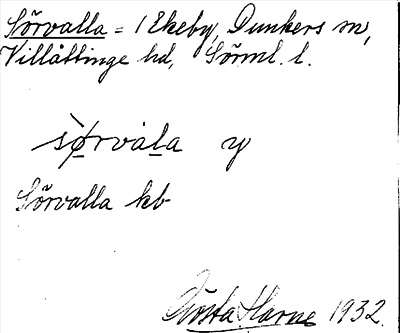 Sörvalla = 1 Ekeby, Dunkers sn,
Villåttinge hd, Sörml. l.
sø̱rvàḻa y
Sörvalla kb
Gösta Harne 1932.